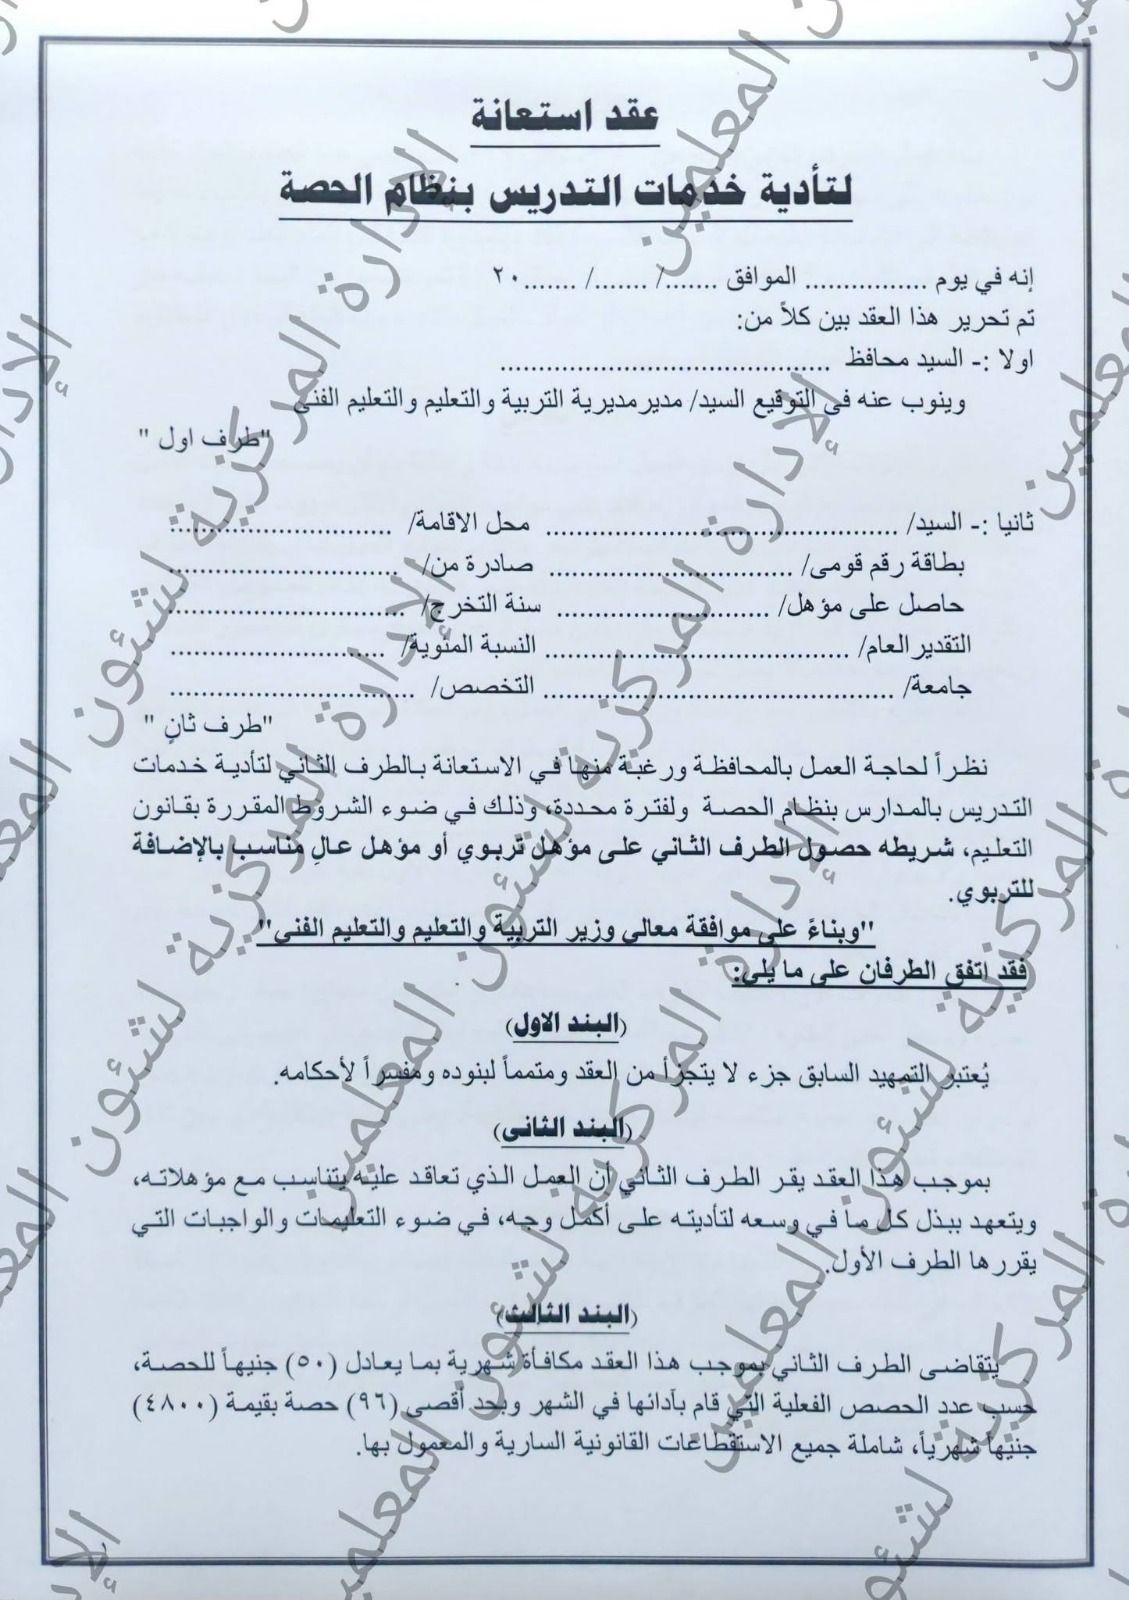 عقد استعانة
لتأدية خدمات التدريس بنظام الحصة
إنه في يوم ................ الموافق ......./ ......./ .......٢٠
تم تحرير هذا العقد بين كلاً من:
اولا :- السيد محافظ ...........................................
وينوب عنه فى التوقيع السيد/ مديرمديرية التربية والتعليم والتعليم الفنى
"طرف اول "
ثانيا :- السيد/ .............................................. محل الاقامة/ .............................
بطاقة رقم قومى/ ................................ صادرة من/ ..............................
حاصل على مؤهل/ ............................ سنة التخرج/ ...............................
التقدير العام/ ........................................ النسبة المئوية/ ............................
جامعة/ .............................................. التخصص/ ................................
"طرف ثانٍ "
نظراً لحاجة العمل بالمحافظة ورغبة منها في الاستعانة بالطرف الثاني لتأدية خدمات
التدريس بالمدارس بنظام الحصة ولفترة محددة، وذلك في ضوء الشروط المقررة بقانون
التعليم، شريطه حصول الطرف الثاني على مؤهل تربوي أو مؤهل عالِ مناسب بالإضافة
للتربوي.
"وبناءً على موافقة معالي وزير التربية والتعليم والتعليم الفنى"
فقد اتفق الطرفان على ما يلي:
(البند الاول)
يُعتبر التمهيد السابق جزء لا يتجزأ من العقد ومتمماً لبنوده ومفسراً لأحكامه.
(البند الثانى)
بموجب هذا العقد يقر الطرف الثاني أن العمل الذي تعاقد عليه يتناسب مع مؤهلاته،
ويتعهد ببذل كل ما في وسعه لتأديته على أكمل وجه، في ضوء التعليمات والواجبات التي
يقررها الطرف الأول.
(البند الثالث)
يتقاضى الطرف الثاني بموجب هذا العقد مكافأة شهرية بما يعادل (٥٠) جنيهاً للحصة،
حسب عدد الحصص الفعلية التي قام بآدائها في الشهر وبحد أقصى (٩٦) حصة بقيمة (٤٨٠٠)
جنيهاً شهرياً، شاملة جميع الاستقطاعات القانونية السارية والمعمول بها.
الإدارة المركزية لشئون المعلمين